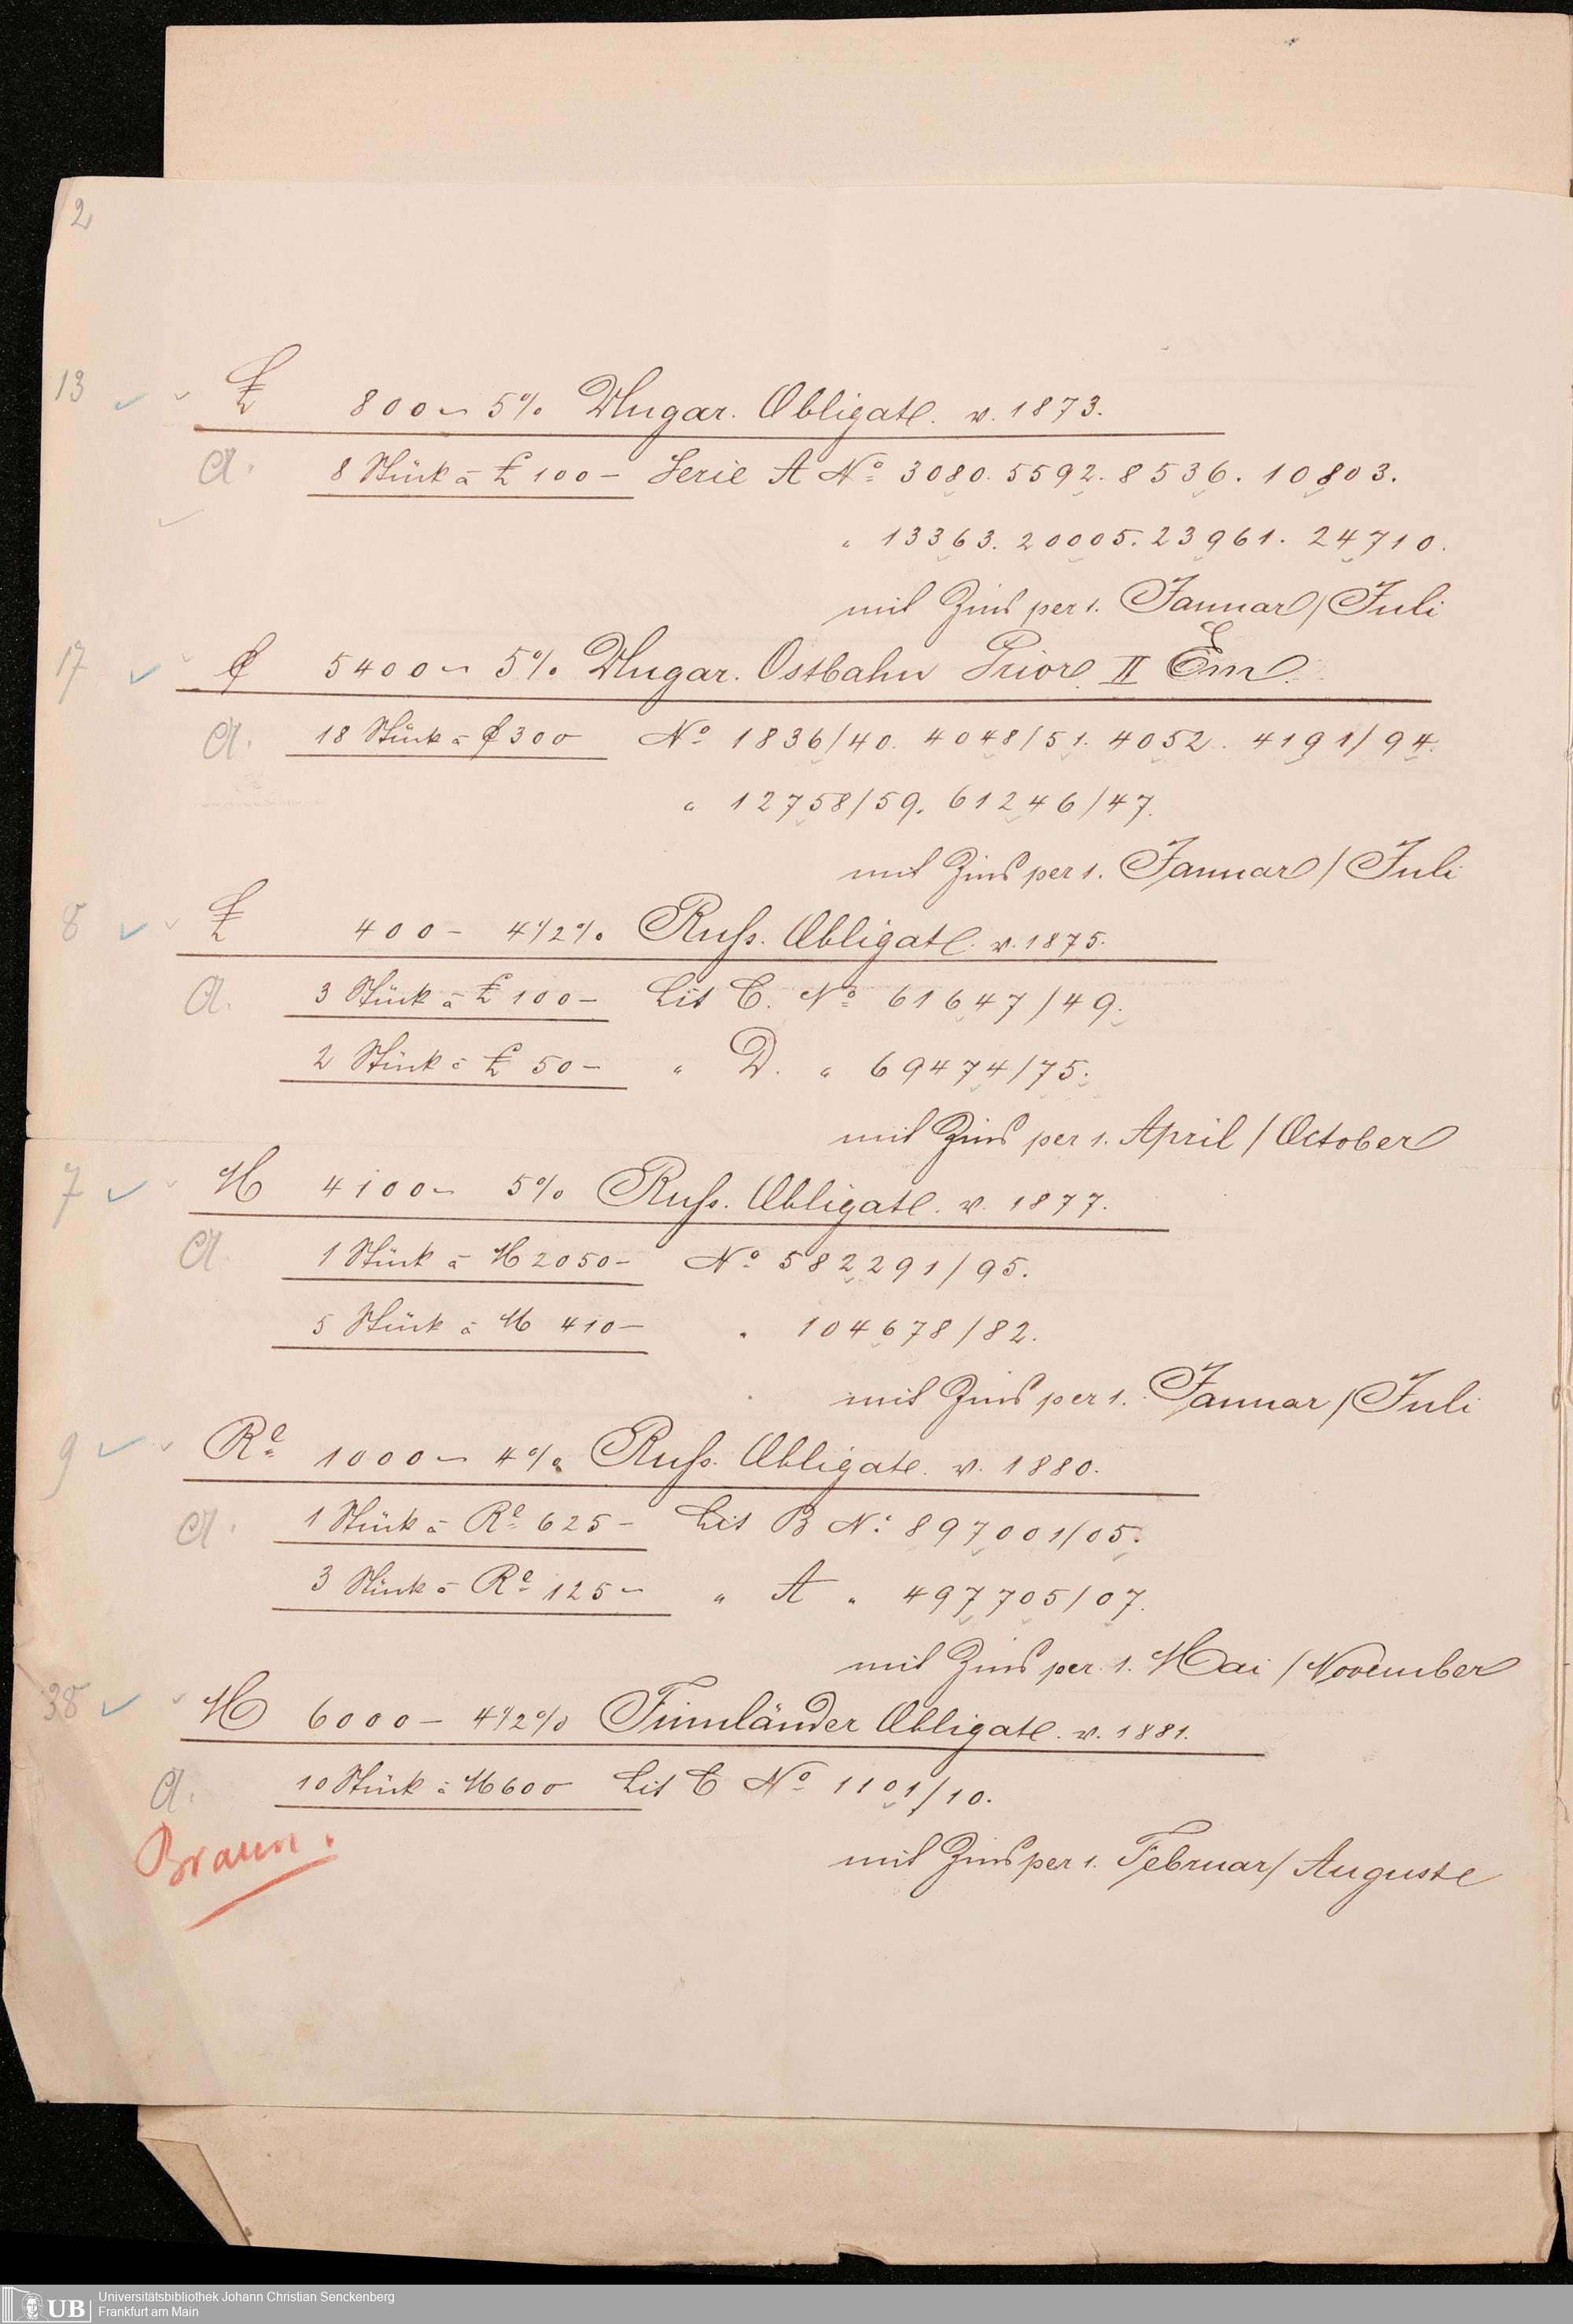 2
13 £ 800 – 5% Ungar. Obligat. v. 1873.
A. 8 Stück à £ 100 – Serie A No 3080. 5592. 8536. 10803.
" 13363. 20005. 23961. 24710.
mit Zins per 1. Januar / Juli
17 5400 – 5% Ungar. Ostbahn Prior. II Em.
A. 18 Stück à 300 No 1836/40. 4048/51. 4052. 4191/94.
" 12758/59. 61246/47.
mit Zins per 1. Januar / Juli
8 £ 400 – 4 1/2% Russ. Obligat. v. 1875.
A. 3 Stück à £ 100 – Lit C. No 61647/49.
2 Stück à £ 50 – " D. " 69474/75.
mit Zins per 1. April / October
7 M 4100 – 5% Russ. Obligat. v. 1877.
A. 1 Stück à M 2050 – No 582291/95.
5 Stück à M 410 – " 104678/82.
mit Zins per 1. Januar / Juli
9 Ro 1000 – 4% Russ. Obligat. v. 1880.
A. 1 Stück à Ro 625 – Lit B No 897001/05.
3 Stück à Ro 125 – " A " 497705/07.
mit Zins per 1. Mai / November
38 M 6000 – 4 1/2% Finnländer Obligat. v. 1881.
A. 10 Stück à M 600 Lit C No 1101/10.
Braun.
mit Zins per 1. Februar / Auguste
UB Universitätsbibliothek Johann Christian Senckenberg
Frankfurt am Main